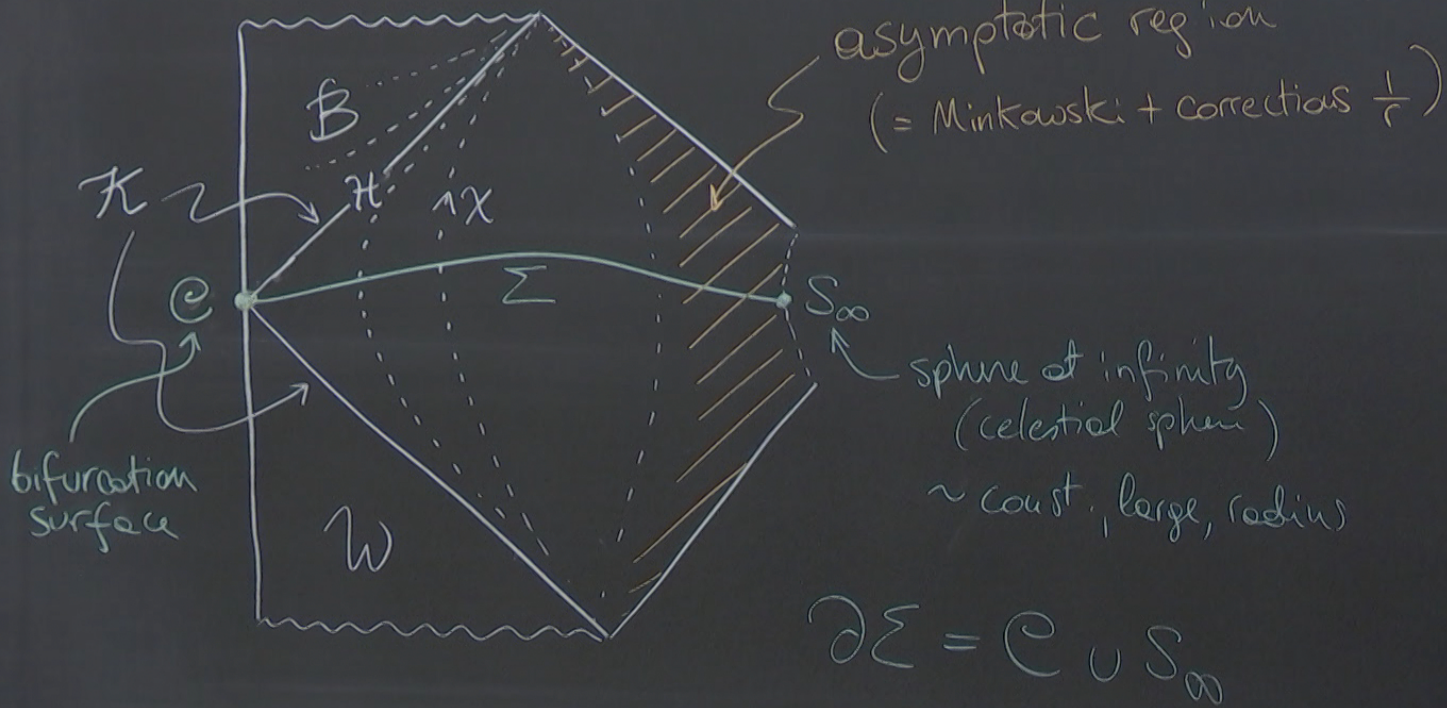 asymptotic region
(= Minkowski + corrections 1/r)
B
K
H
χ
C
Σ
S∞
sphere at infinity
(celestial sphere)
~ const., large, radius
bifurcation
surface
W
∂Σ = C ∪ S∞